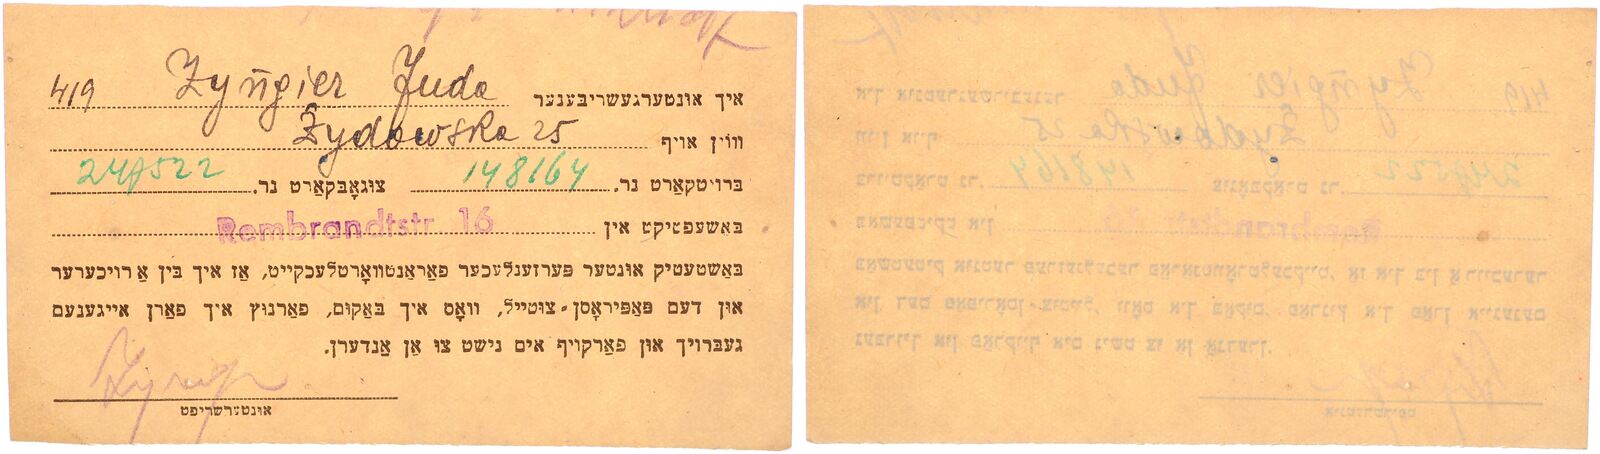 איך אונטערגעשריבענער Zyngier Juda 419
וווין אויף Zydowska 25
ברויטקאַרט נר. 148164 צוגאָבקאַרט נר.
באַשעפטיקט אין Rembrandtstr 16
באַשטעטיק אונטער פּערזענלעכער פאַראַנטוואָרטלעכקייט, אַז איך בין אַ רויכערער
און דעם פּאַפּיראָסן-צוטייל, וואָס איך באַקום, פאַרנוץ איך פאַרן אייגענעם
געברויך און פאַרקויף אים נישט צו אַן אַנדערן.
אונטערשריפט